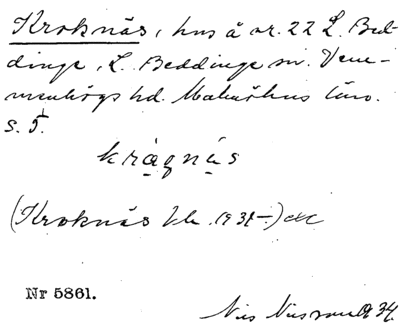 Kroknäs, hus å nr. 22 L. Bed-
dinge, L. Beddinge sn. Vem-
menhögs hd. Malmöhus län.
s. 5.
krạgnạ̈s
(Kroknäs kb. 1931-)
Nr 5861.
Nils Nilsson 1934.